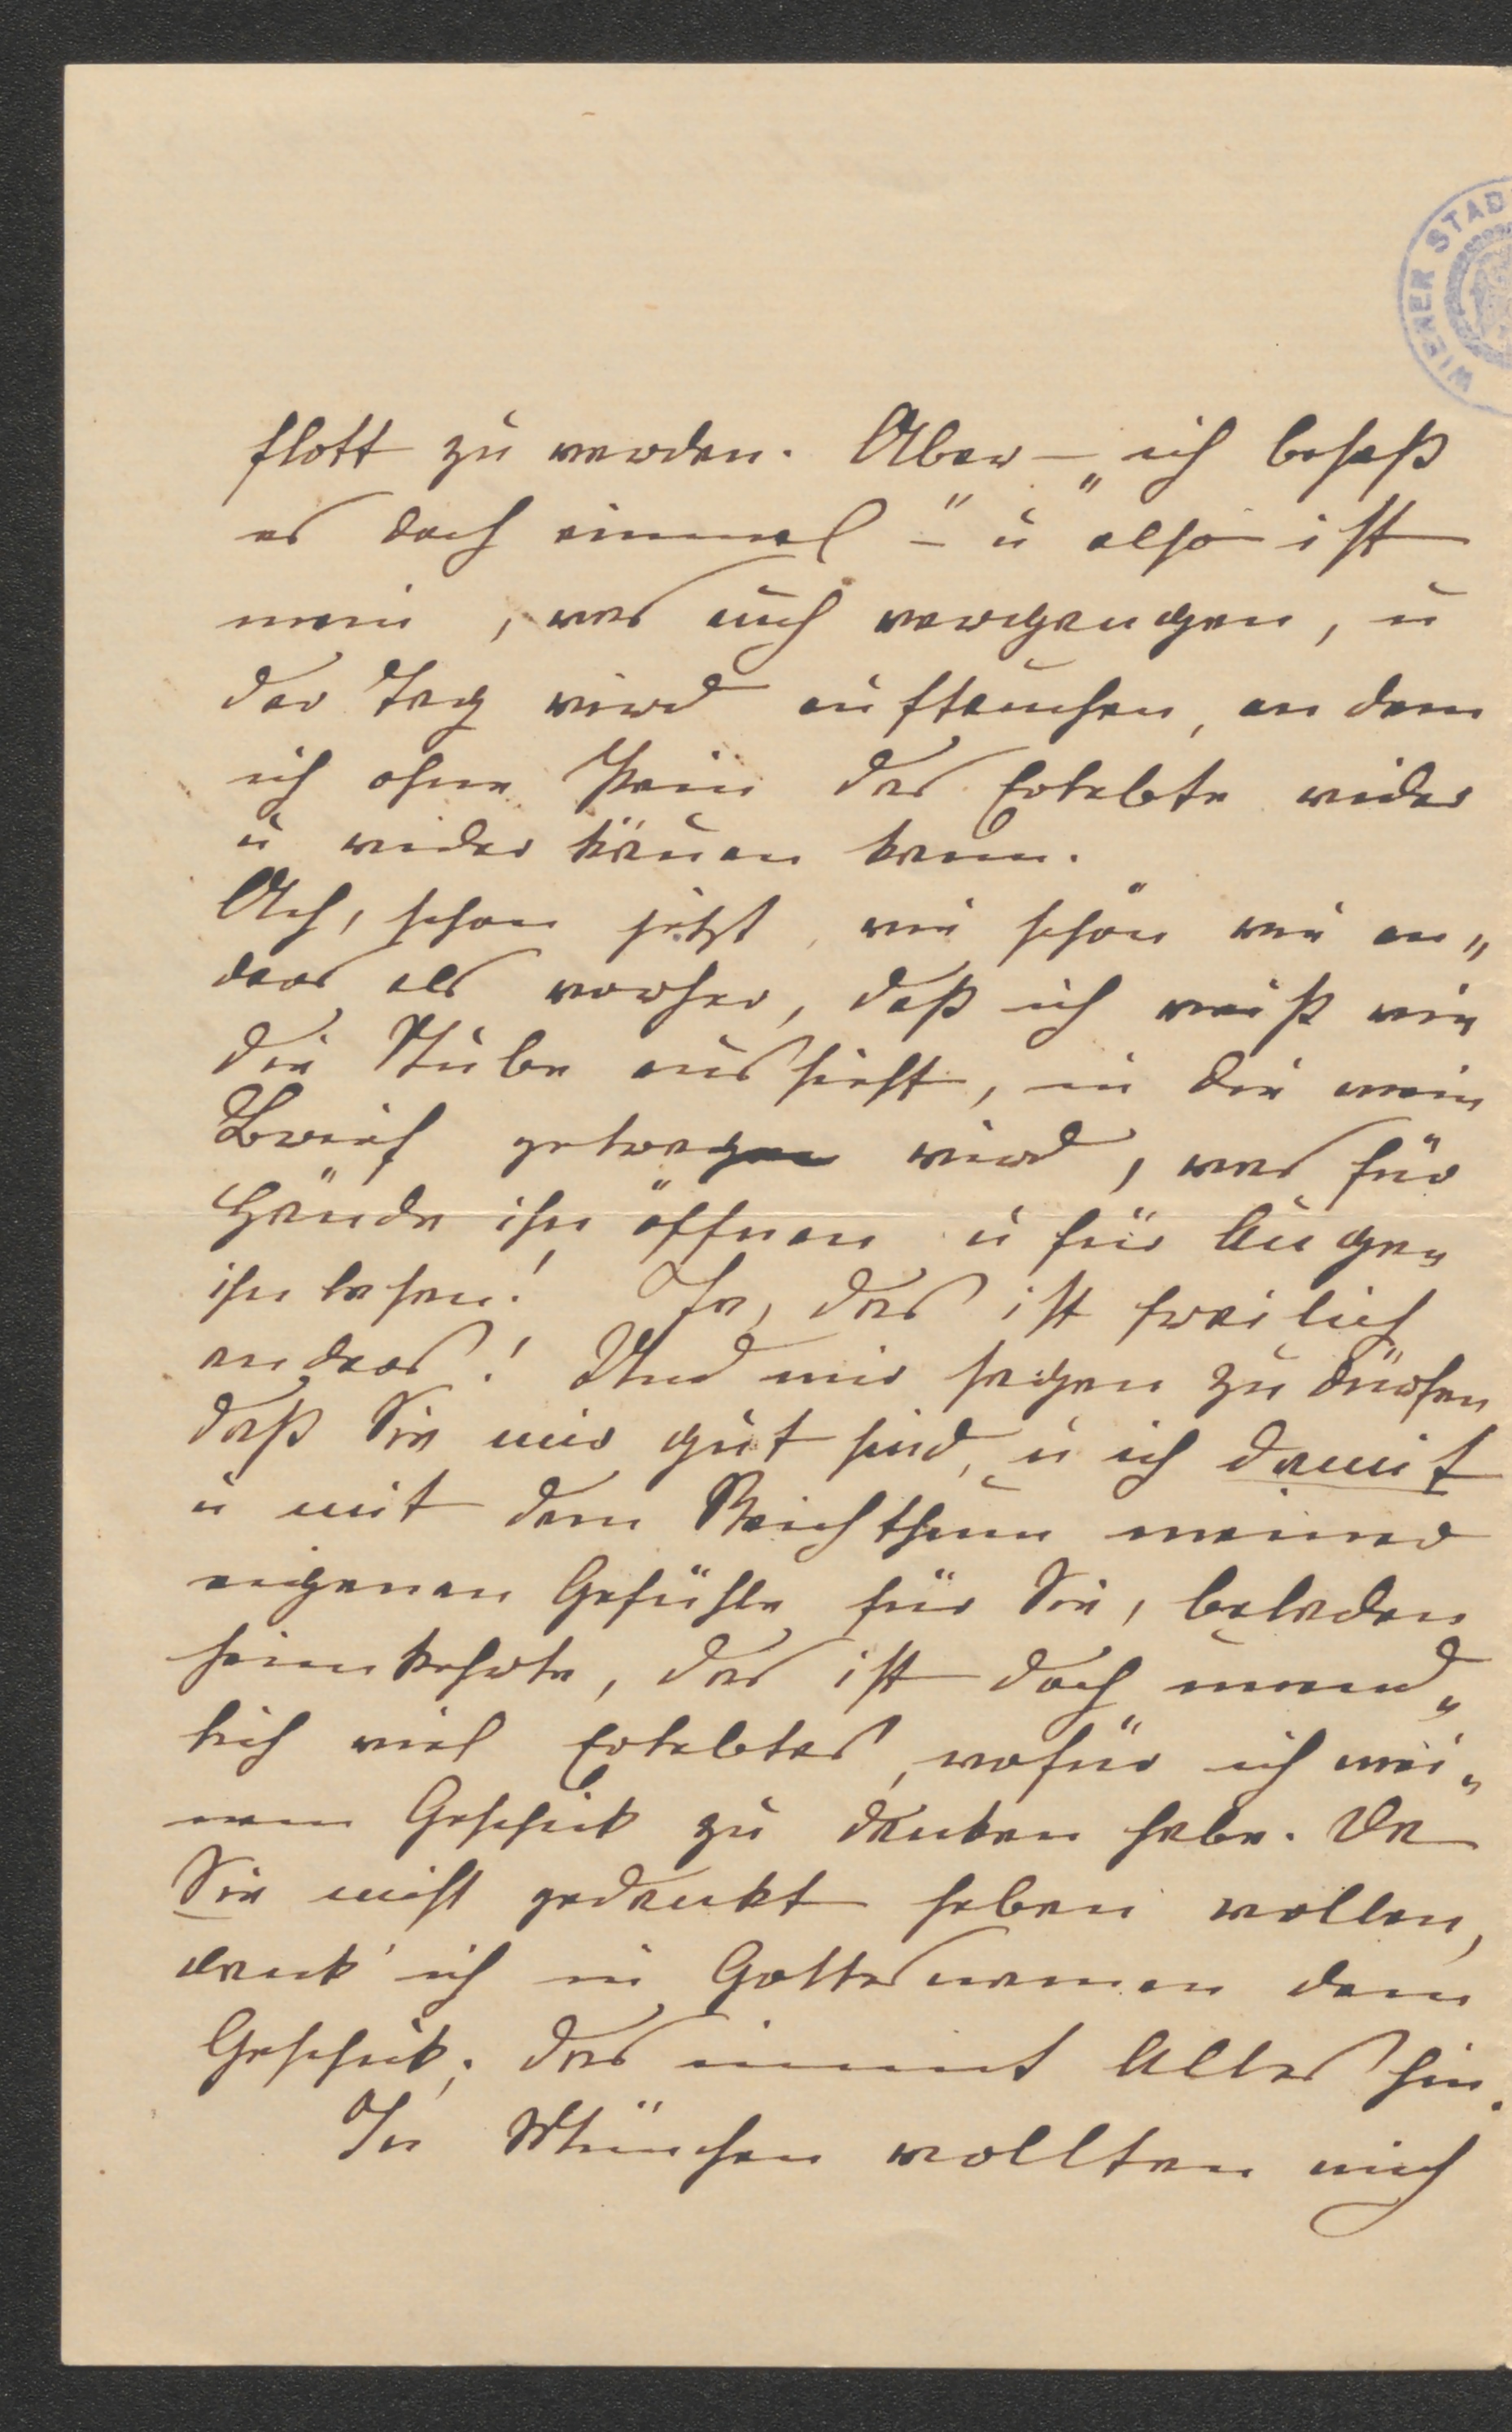 WIENER STAD
flott zu werden. Aber – „ich besaß
es doch einmal –" u also ist
mein, was auch vergangen, u
der Tag wird auftauchen, an dem
ich ohne Pein das Erlebte wider
u wider käuen kann.
Ach, schon jetzt, wie schön wie an„
ders als vorher, daß ich weiß wie
die Stube aussieht, in die mein
Brief getragen wird, was für
Hände ihn öffnen u für Augen
ihn lesen! Ja, das ist freilich
anders! Und mir sagen zu dürfen
daß Sie mir gut sind, u ich damit
u mit dem Reichthum meiner
eigenen Gefühle für Sie, beladen
heimkehrte, das ist doch unend„
lich viel Erlebtes, wofür ich mei„
nem Geschick zu danken habe. Da
Sie nicht gedankt haben wollen,
dank' ich in Gottesnamen dem
Geschick; das nimmt Alles hin.
In München wollten mich